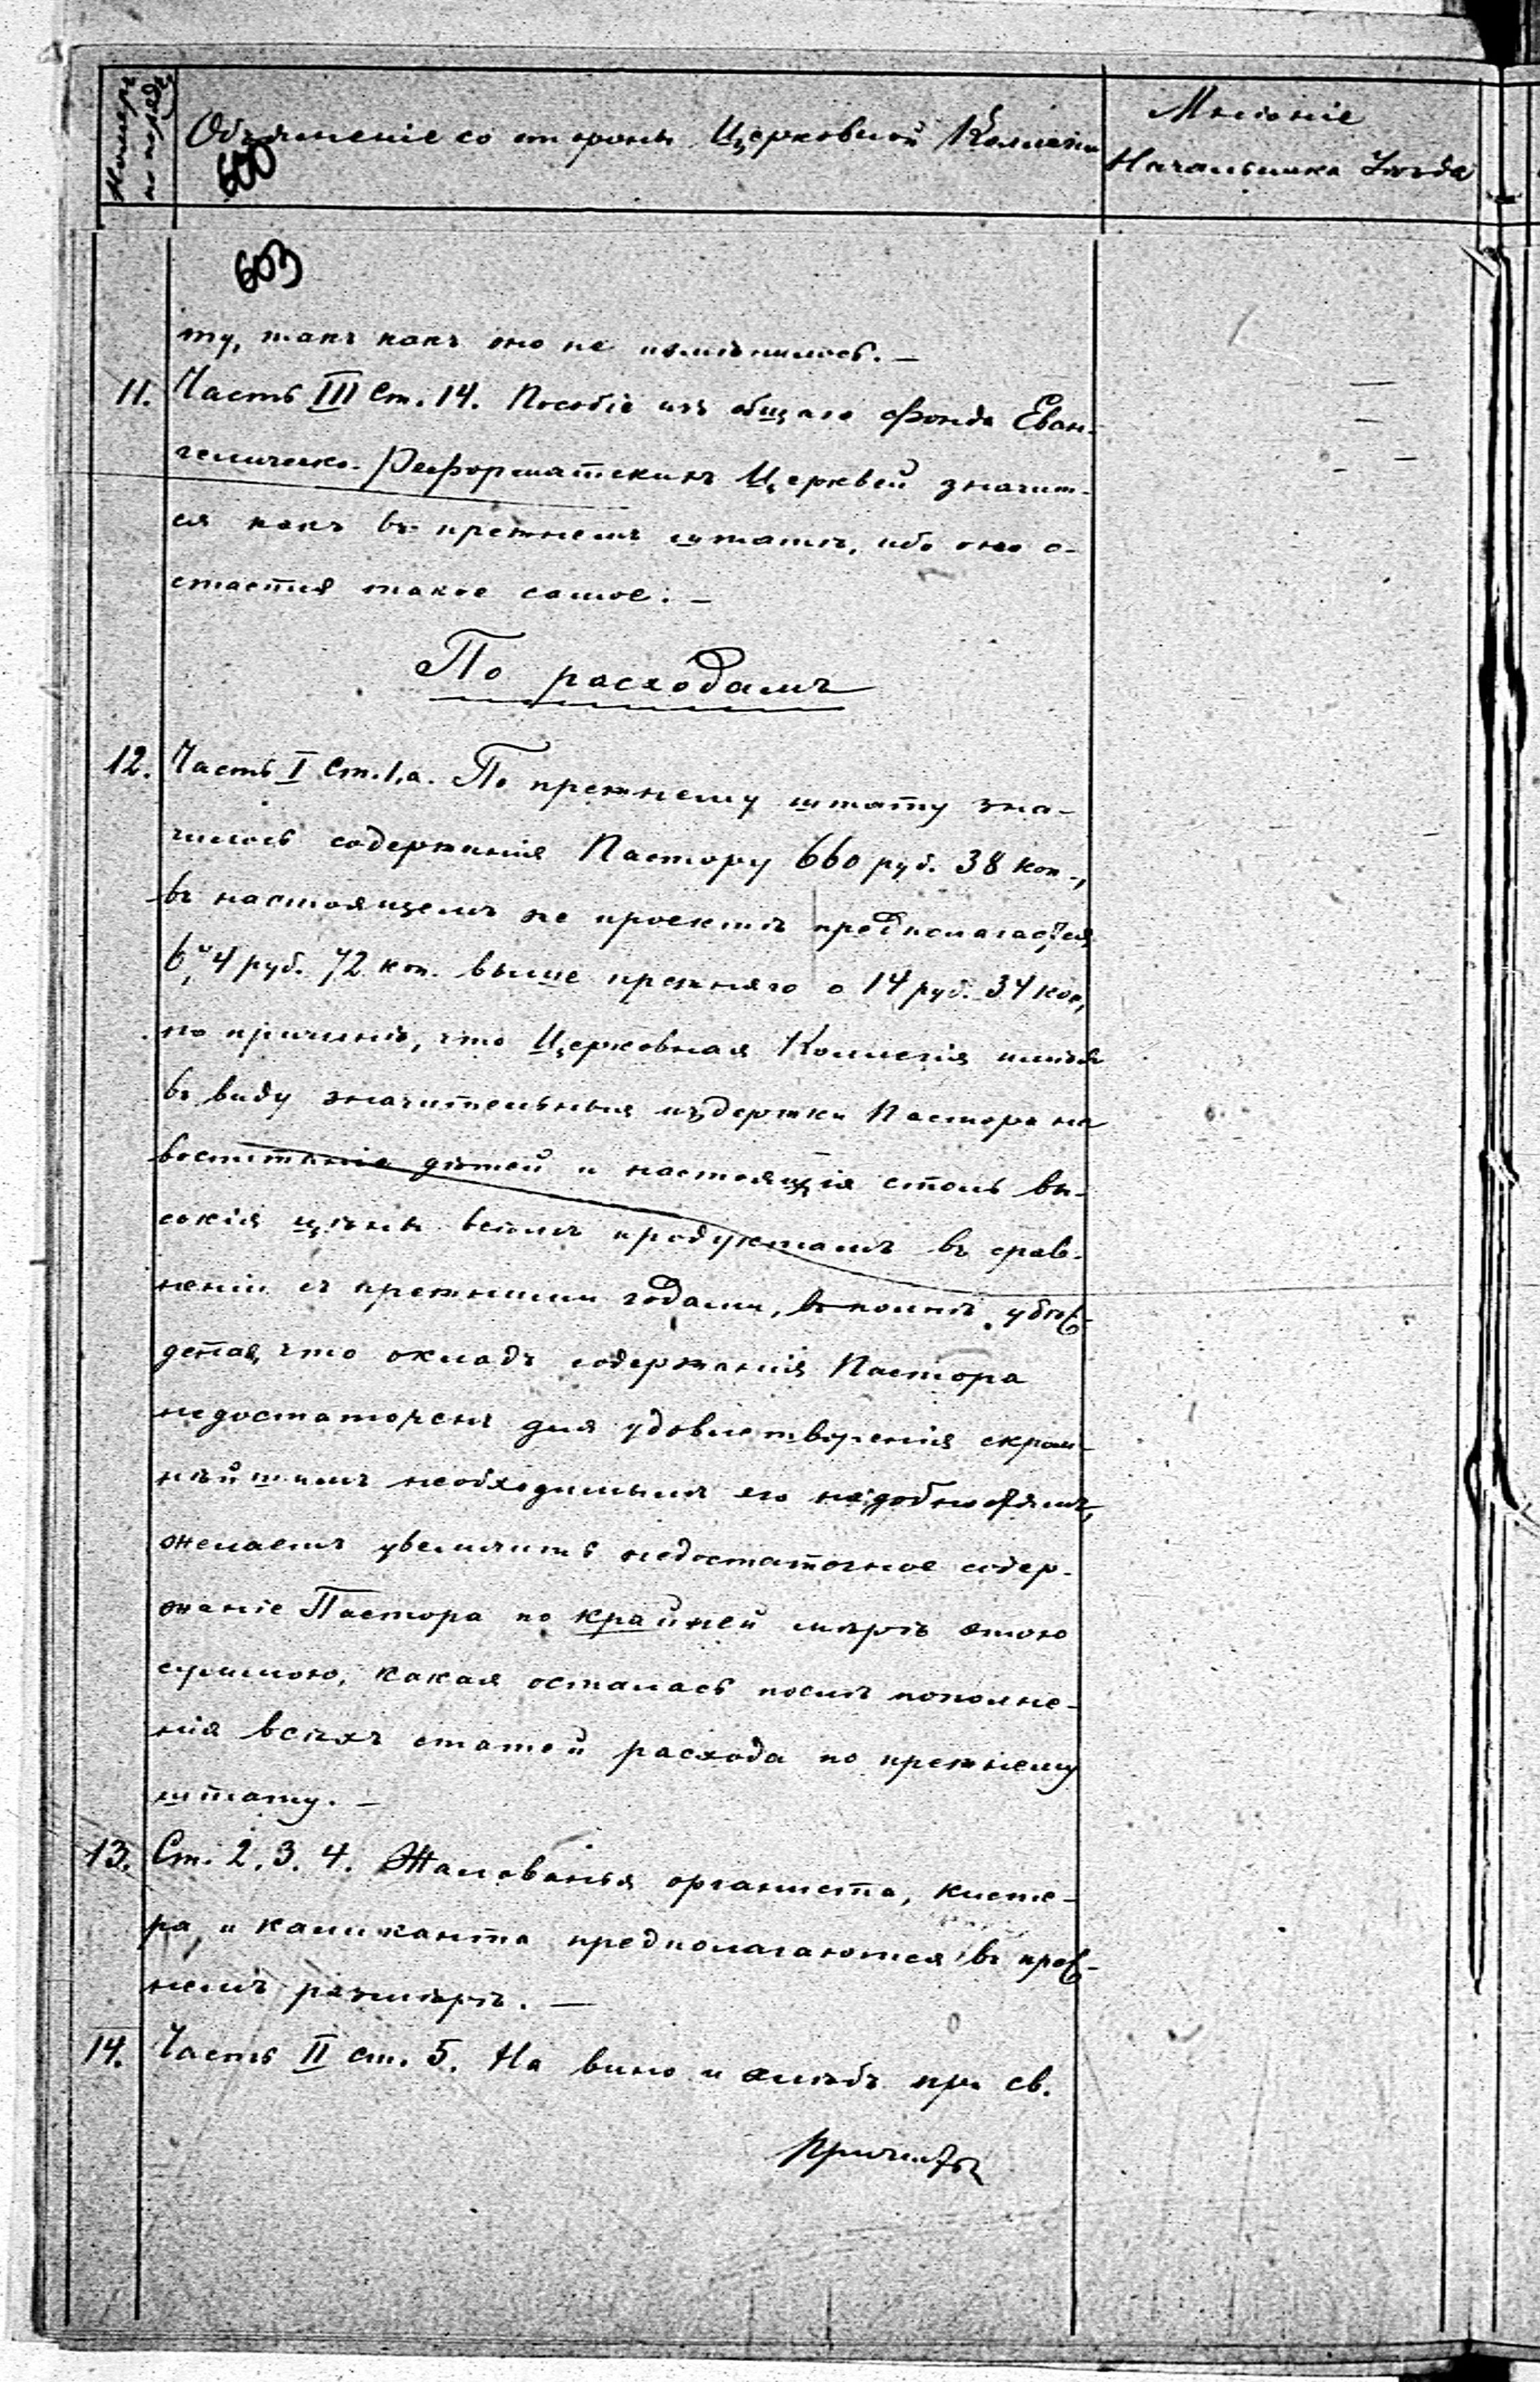 Номеръ по порядк.
Объясненіе со стороны Церковной Коллегіи
Мнѣніе
Начальника Уѣзда
600
603
ту, такъ какъ оно не измѣнилось. —
11. Часть III Ст. 14. Пособіе изъ общаго Фонда Еван-
гелическо-Реформатскихъ Церквей значит-
ся какъ въ прежнемъ штатѣ, ибо оно о-
стается такое самое. —
По расходамъ
12. Часть I Ст. 1, а. По прежнему штату зна-
чилось содержанія Пастору 660 руб. 38 коп.,
въ настоящемъ же проектѣ предполагается
6 4 руб. 72 коп. выше прежняго о 14 руб. 34 коп,
по причинѣ, что Церковная Коллегія имѣя
въ виду значительныя издержки Пастора на
воспитаніе дѣтей и настоящія столь вы-
сокія цѣны всѣмъ продуктамъ въ срав-
неніи съ прежними годами, вполнѣ убѣж-
дена, что окладъ содержанія Пастора
недостаточенъ для удовлетворенія скром-
нѣйшимъ необходимымъ его надобностямъ,
желаетъ увеличить недостаточное содер-
жаніе Пастора по крайней мѣрѣ этою
суммою, какая осталась послѣ пополне-
нія всѣхъ статей расхода по прежнему
штату. —
13. Ст. 2. 3. 4. Жалованья органиста, кисте-
ра, и каликанта предполагаются въ преж-
немъ размѣрѣ. —
14. Часть II ст. 5. На вино и хлѣбъ при св.
Причастіи